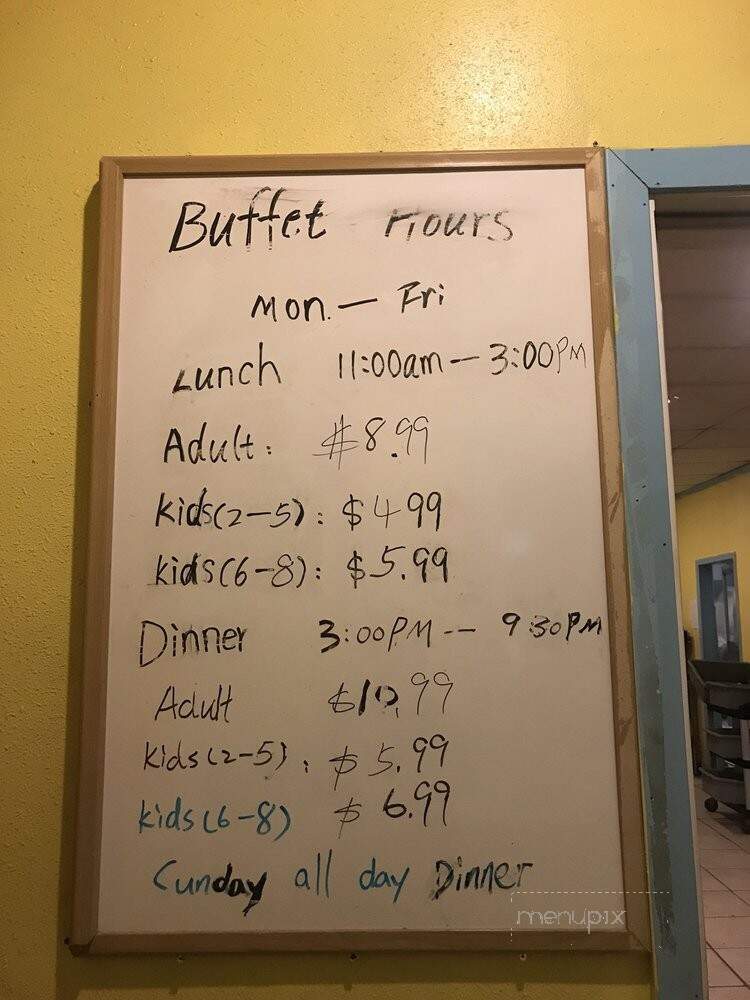 Buffet Hours
Mon. — Fri
Lunch 11:00am — 3:00PM
Adult: $8.99
kids(2-5): $4.99
kids(6-8): $5.99
Dinner 3:00PM -- 9:30PM
Adult $10.99
kids(2-5): $5.99
kids(6-8) $6.99
Cunday all day Dinner
menupix